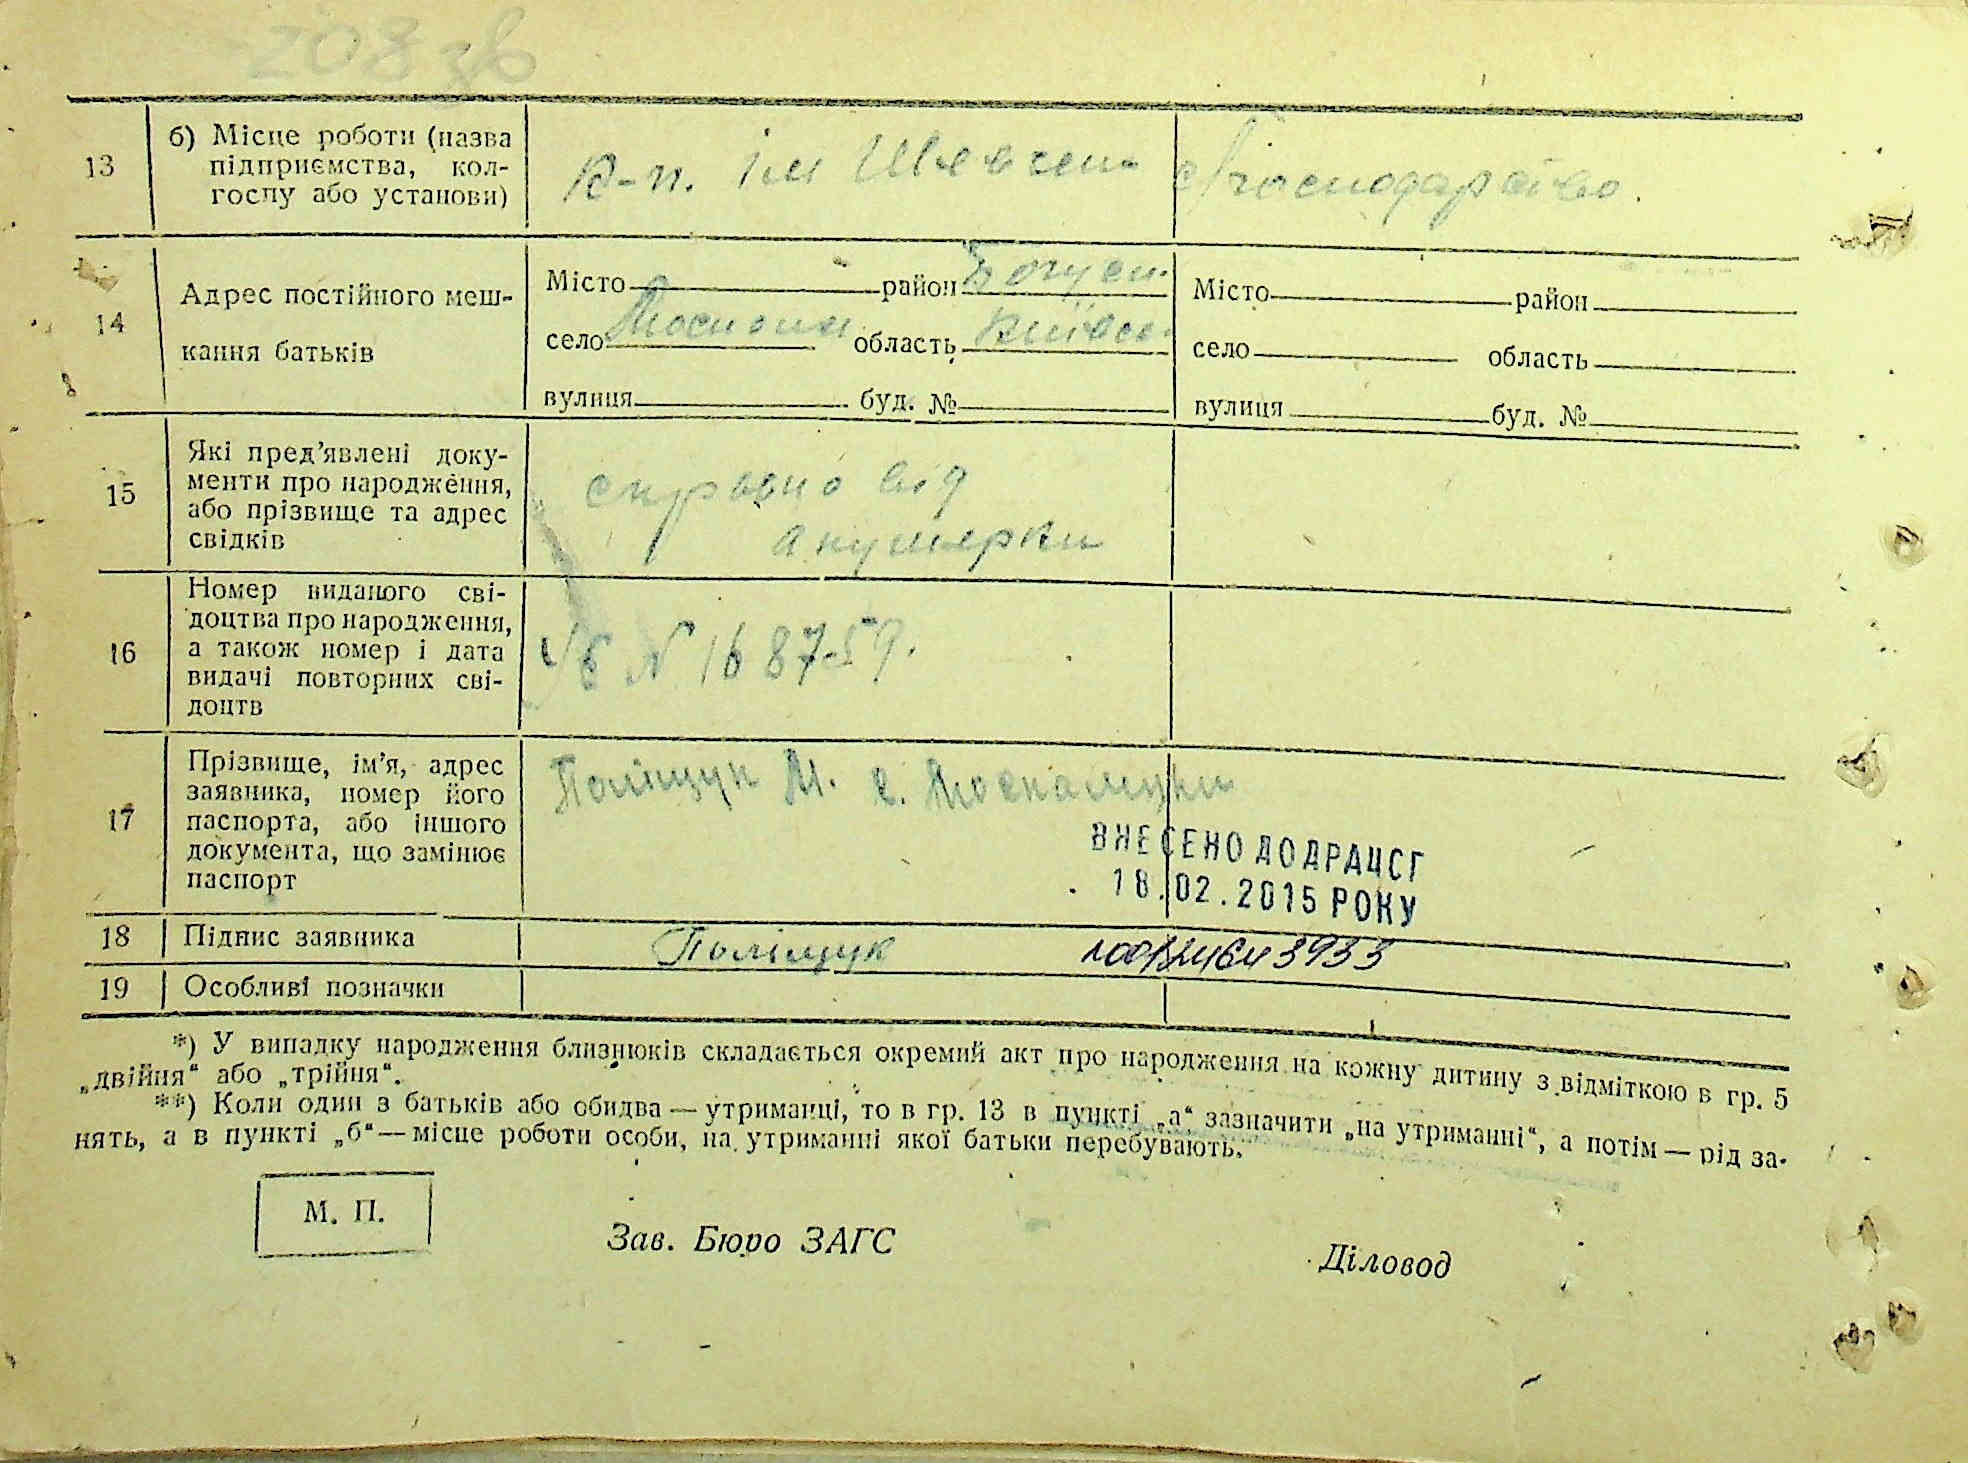 208 зв
13
б) Місце роботи (назва
підприємства, кол-
госпу або установи)
к-п. ім Шевчен
Господарство.
14
Адрес постійного меш-
кання батьків
Місто район Богусл.
село область Київськ
вулиця буд. №
Місто район
село область
вулиця буд. №
15
Які пред’явлені доку-
менти про народження,
або прізвище та адрес
свідків
справка від
акушерки
16
Номер виданого сві-
доцтва про народження,
а також номер і дата
видачі повторних сві-
доцтв
N 168759.
17
Прізвище, ім’я, адрес
заявника, номер його
паспорта, або іншого
документа, що замінює
паспорт
Поліщук М. с.
ВНЕСЕНО ДО ДРАЦСГ
18.02.2015 РОКУ
18
Підпис заявника
Поліщук
3933
19
Особливі позначки
*) У випадку народження близнюків складається окремий акт про народження на кожну дитину з відміткою в гр. 5
„двійня“ або „трійня“.
**) Коли один з батьків або обидва — утриманці, то в гр. 13 в пункті „а“ зазначити „на утриманні“, а потім — рід за-
нять, а в пункті „б“ — місце роботи особи, на утриманні якої батьки перебувають.
М. П.
Зав. Бюро ЗАГС
Діловод